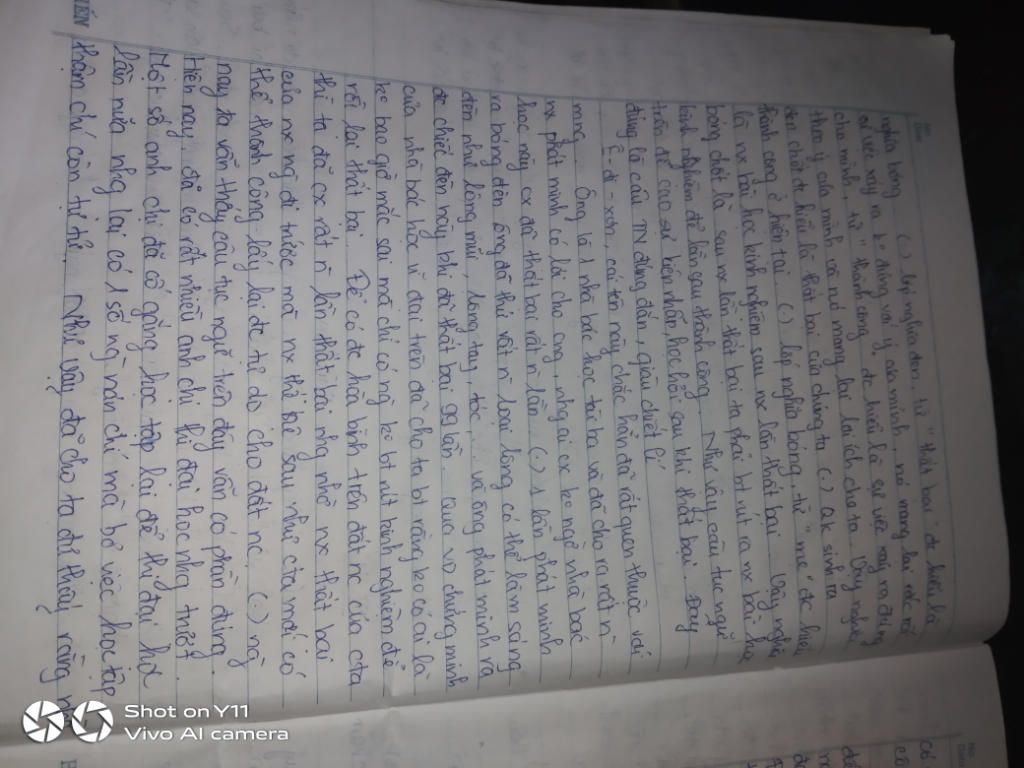 nghĩa bóng. (.) lớp nghĩa đen, từ "thất bại" đc hiểu là
sự việc xảy ra ko đúng với ý của mình, nó mang lại rắc rối
cho mình, từ "thành công" đc hiểu là sự việc xảy ra đúng
theo ý của mình và nó mang lại lợi ích cho ta. Vậy nghĩa
đen chốt đc hiểu là thất bại của chúng ta (.) ak sinh ra
thành công ở hiện tại. (.) lớp nghĩa bóng, từ "mẹ" đc hiểu
là nx bài học kinh nghiệm sau nx lần thất bại. Vậy nghĩa
bóng chốt là sau nx lần thất bại ta phải bt rút ra nx bài học
kinh nghiệm để lần sau thành công. Như vậy câu tục ngữ
trên đề cao sự bền nhẫn, học hỏi sau khi thất bại. Đây
đúng là câu TN đúng đắn, giàu chiết lí
Ê-đi-xơn, cái tên này chắc hẳn đã rất quen thuộc với
mng. Ông là 1 nhà bác học tài ba và đã cho ra rất n`
nx phát minh có lợi cho cng, nhg ai cx ko ngờ nhà bác
học này cx đã thất bại rất n` lần (.) 1 lần phát minh
ra bóng đèn ông đã thử rất n` loại lông có thể làm sáng
đèn như lông mũi, lông tay, tóc,... và ông phát minh ra
đc chiếc đèn này khi đã thất bại 99 lần. Qua vd chứng minh
của nhà bác học vĩ đại trên đã cho ta bt rằng ko có ai là
ko bao giờ mắc sai mà chỉ có ng ko bt rút kinh nghiệm để
rồi lại thất bại. Để có đc hòa bình trên đất nc của cta
thì ta đã cx rất n` lần thất bại nhg nhờ nx thất bại
của nx ng đi trước mà nx thế hệ sau như cta mới có
thể thành công lấy lại đc tự do cho đất nc. (.) ng
nay ta vẫn thấy câu tục ngữ trên đây vẫn có phần đúng.
Hiện nay, đã có rất nhiều anh chị thi đại học nhg trượt.
Một số anh chị đã cố gắng học tập lại để thi đại học
lần nữa nhg lại có 1 số ng nản chí mà bỏ việc học tập
thậm chí còn tự tử. Như vậy đã cho ta dễ thấy rằng n
Shot on Y11
Vivo AI camera